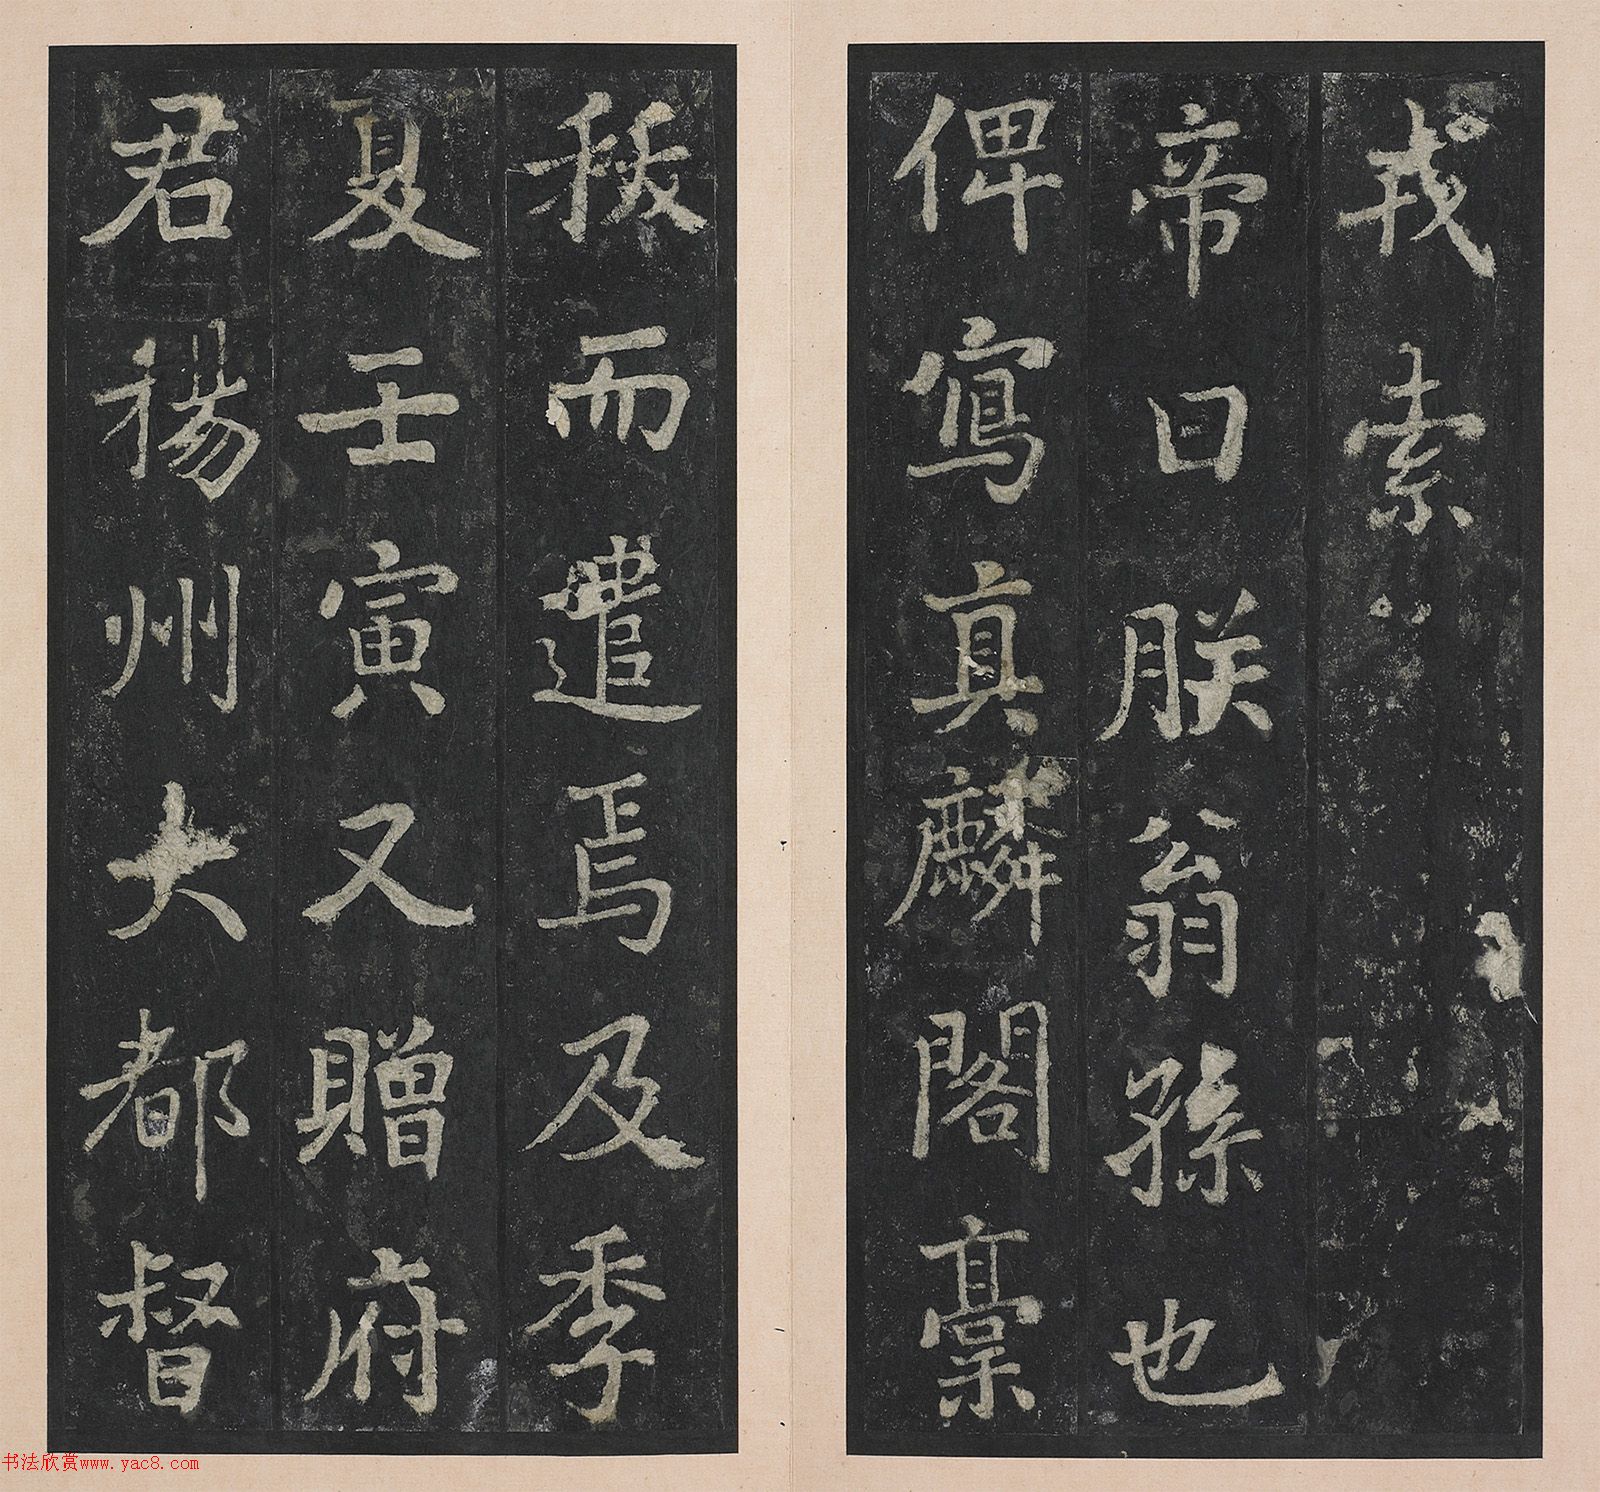 戎索
帝曰朕翁孫也
俾寫真麟閣稾
秡而遣焉及季
夏壬寅又贈府
君楊州大都督
书法欣赏www.yac8.com